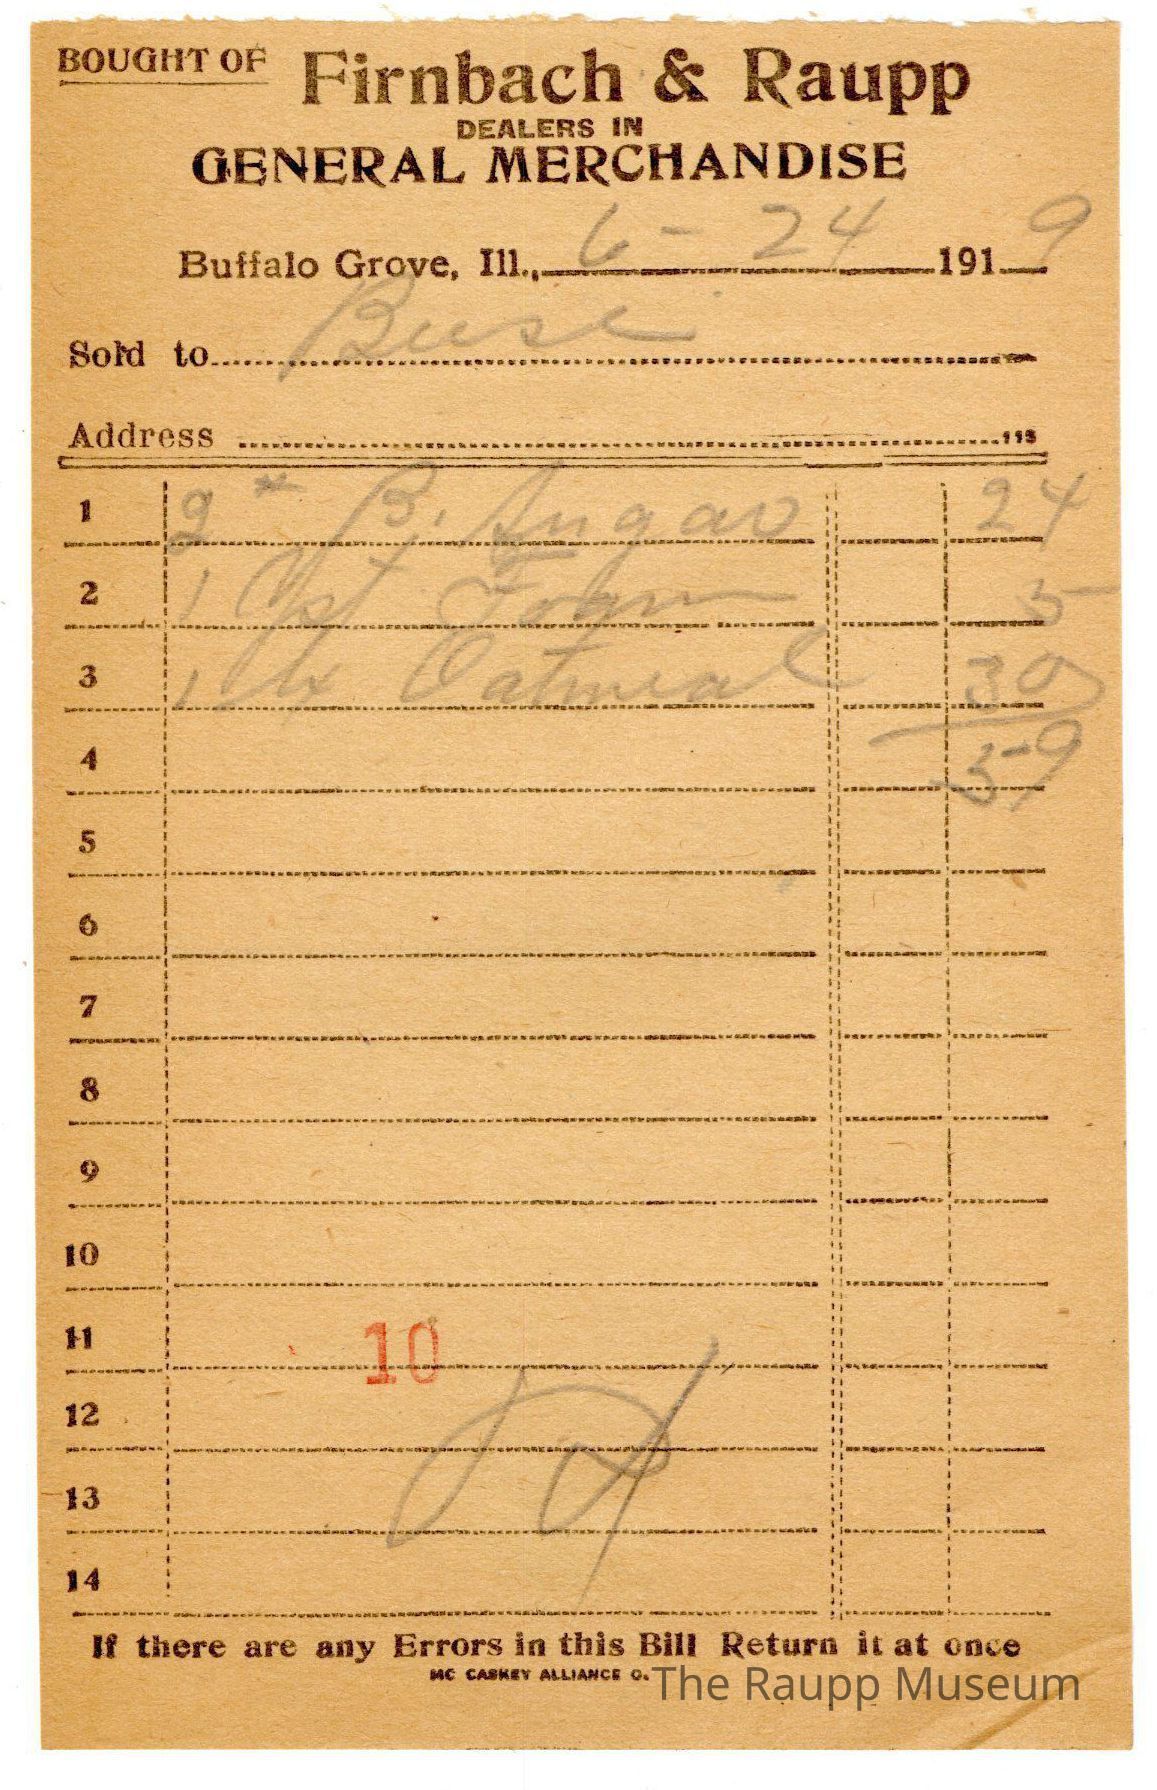 BOUGHT OF Firnbach & Raupp
DEALERS IN
GENERAL MERCHANDISE
Buffalo Grove, Ill., 6-24 1919
Sold to Buse
Address 113
1 2# B. Sugar 24
2 1 Yst Foam 5
3 1 Oatmeal 30
4 59
5
6
7
8
9
10
11 10
12
13
14
If there are any Errors in this Bill Return it at once
MC CASKEY ALLIANCE O.
The Raupp Museum